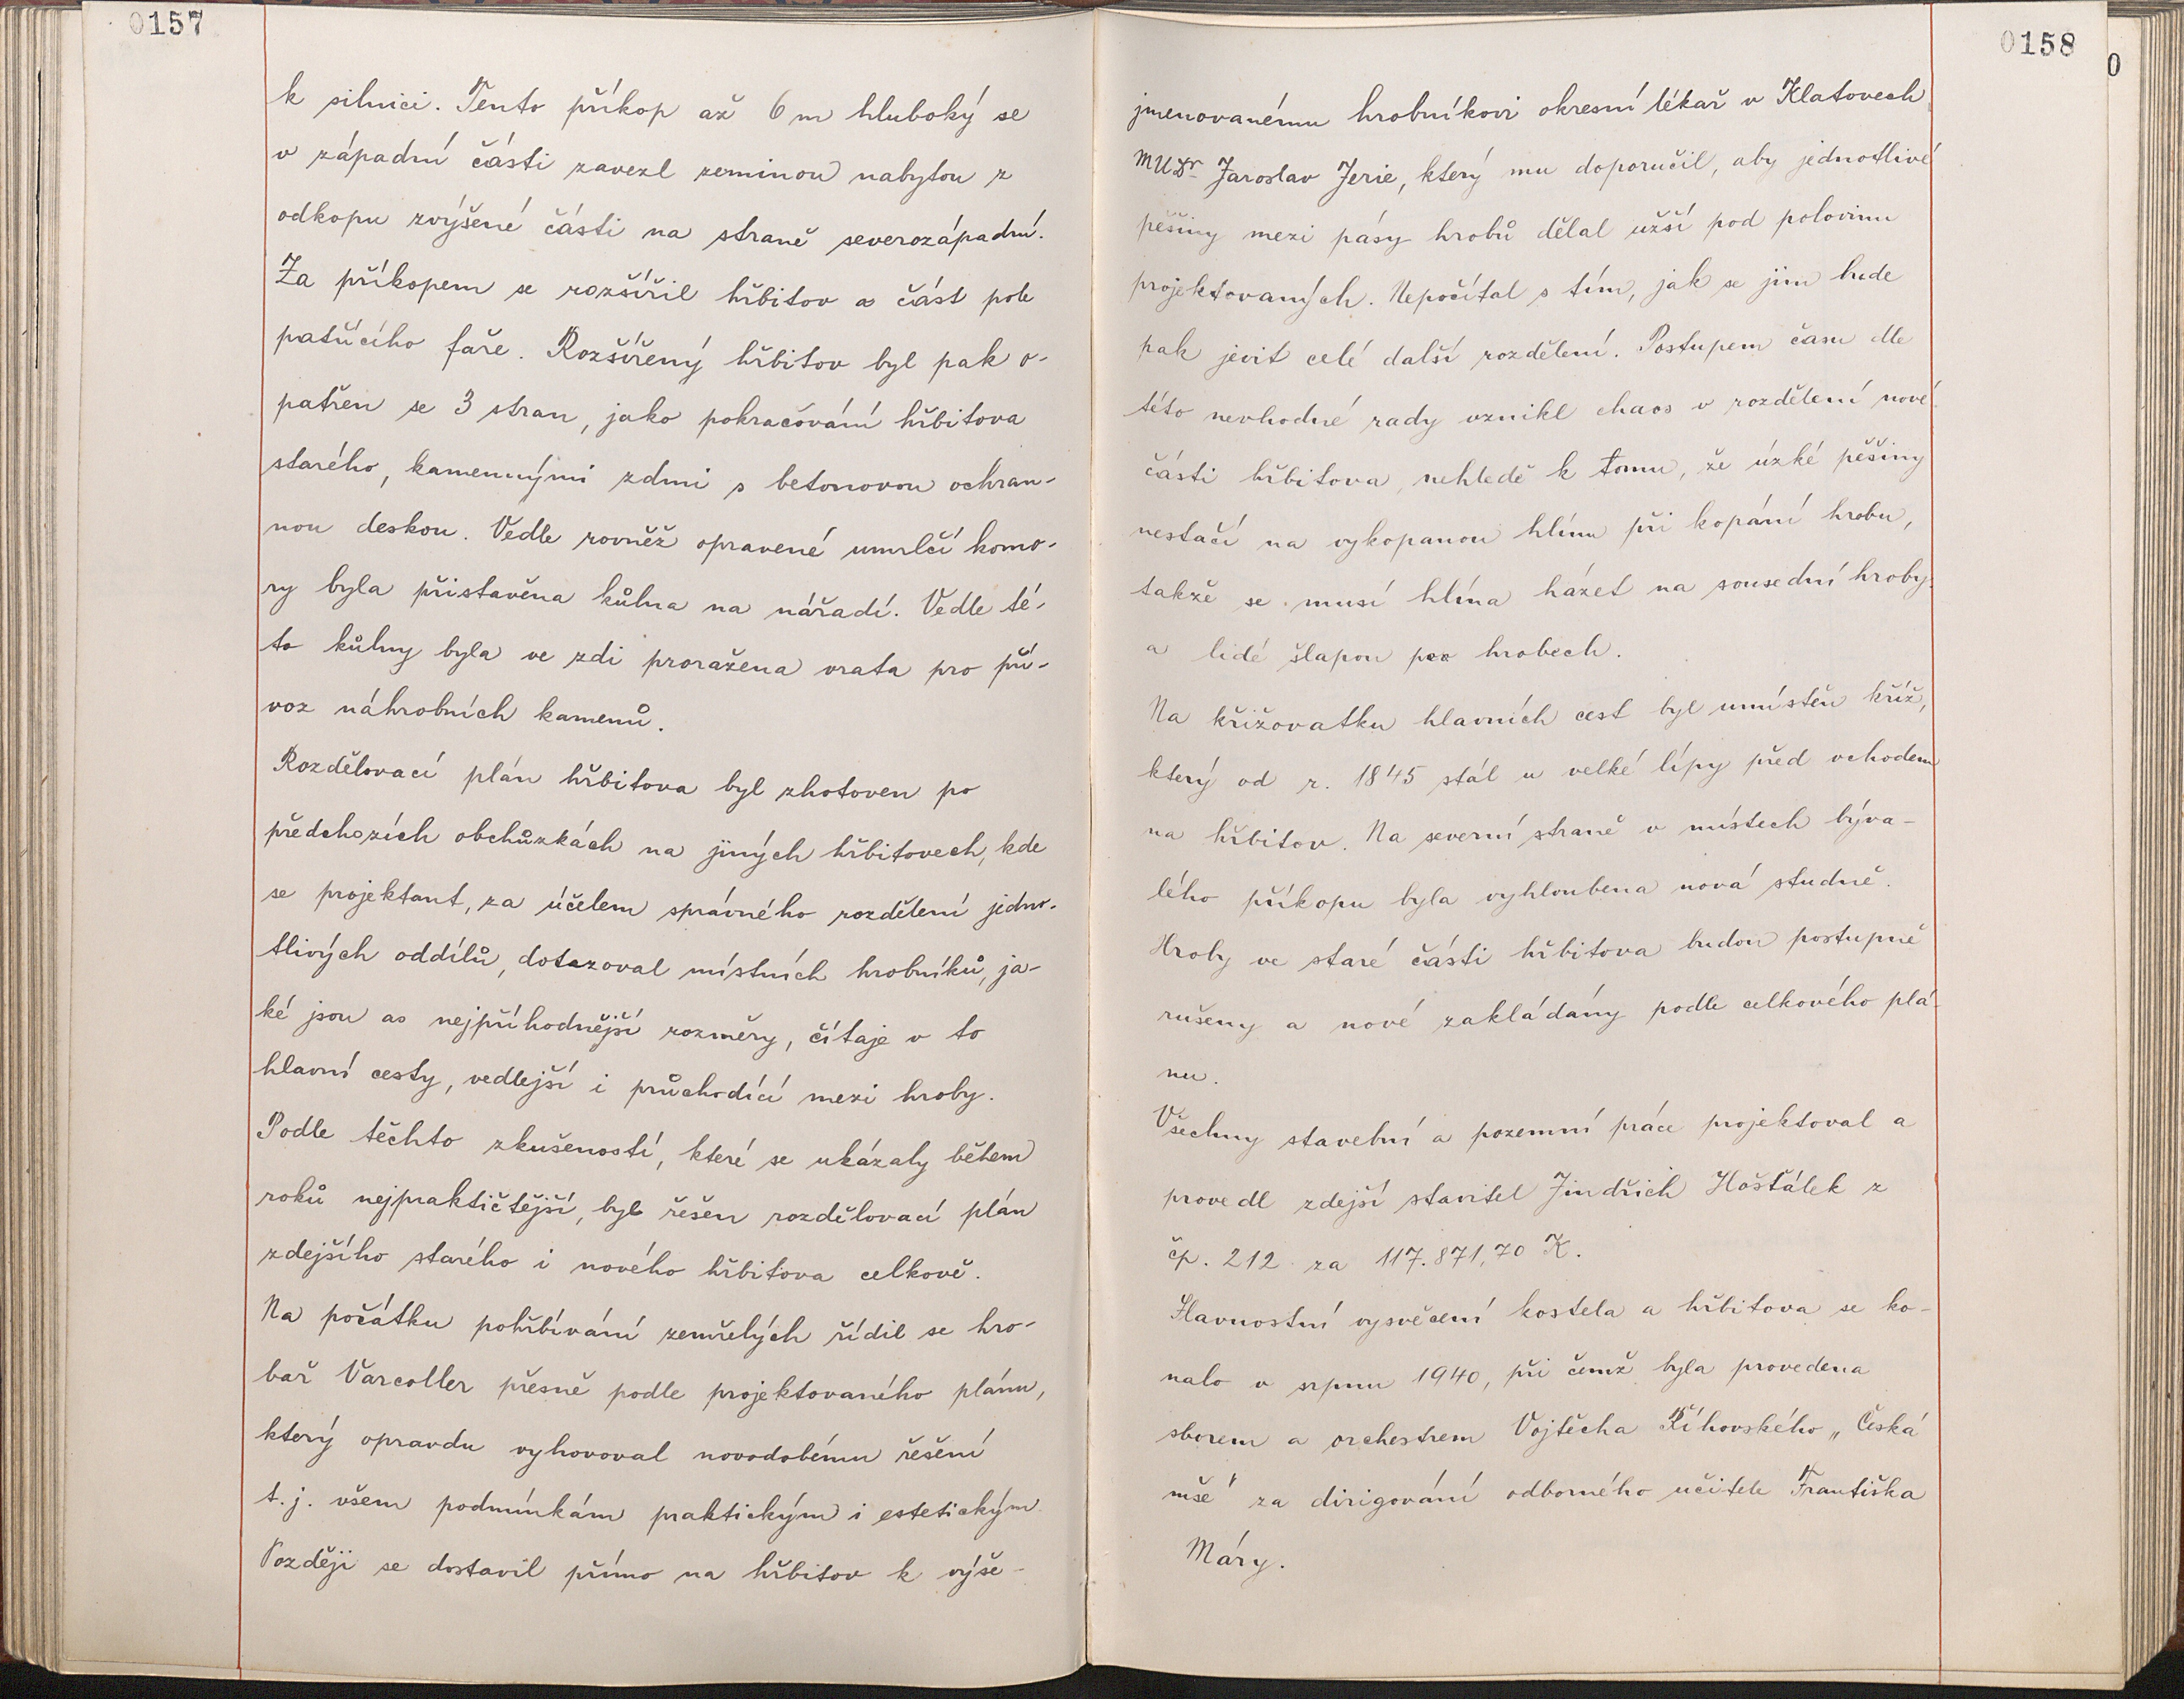 0157
k silnici. Tento příkop až 6 m hluboký se
v západní části zavezl zeminou nabytou z
odkopu zvýšené části na straně severozápadní.
Za příkopem se rozšířil hřbitov o část pole
patřícího faře. Rozšířený hřbitov byl pak o-
patřen se 3 stran, jako pokračování hřbitova
starého, kamennými zdmi s betonovou ochran-
nou deskou. Vedle rovněž opravené umrlčí komo-
ry byla přistavěna kůlna na nářadí. Vedle té-
to kůlny byla ve zdi proražena vrata pro při-
voz náhrobních kamenů.
Rozdělovací plán hřbitova byl zhotoven po
předchozích obchůzkách na jiných hřbitovech, kde
se projektant, za účelem správného rozdělení jedno-
tlivých oddílů, dotazoval místních hrobníků, ja-
ké jsou as nejpříhodnější rozměry, čítaje v to
hlavní cesty, vedlejší i průchodící mezi hroby.
Podle těchto zkušeností, které se ukázaly během
roků nejpraktičtější, byl řešen rozdělovací plán
zdejšího starého i nového hřbitova celkově.
Na počátku pohřbívání zemřelých řídil se hro-
bař Varcoller přesně podle projektovaného plánu,
který opravdu vyhovoval novodobému řešení
t. j. všem podmínkám praktickým i estetickým
Později se dostavil přímo na hřbitov k výše-
0158
0
jmenovanému hrobníkovi okresní lékař v Klatovech
MUDr Jaroslav Jerie, který mu doporučil, aby jednotlivé
pěšiny mezi pásy hrobů dělal užší pod polovinu
projektovaných. Nepočítal s tím, jak se jim bude
pak jevit celé další rozdělení. Postupem času dle
této nevhodné rady vznikl chaos v rozdělení nové
části hřbitova, nehledě k tomu, že úzké pěšiny
nestačí na vykopanou hlínu při kopání hrobu,
takže se musí hlína házet na sousední hroby
a lidé šlapou po hrobech.
Na křižovatku hlavních cest byl umístěn kříž,
který od r. 1845 stál u velké lípy před vchodem
na hřbitov. Na severní straně v místech býva-
lého příkopu byla vyhloubena nová studně.
Hroby ve staré části hřbitova budou postupně
rušeny a nové zakládány podle celkového plá-
nu.
Všechny stavební a pozemní práce projektoval a
provedl zdejší stavitel Jindřich Hošťálek z
čp. 212 za 117.871,70 K.
Slavnostní vysvěcení kostela a hřbitova se ko-
nalo v srpnu 1940, při čemž byla provedena
sborem a orchestrem Vojtěcha Říhovského „Česká
mše" za dirigování odborného učitele Františka
Máry.